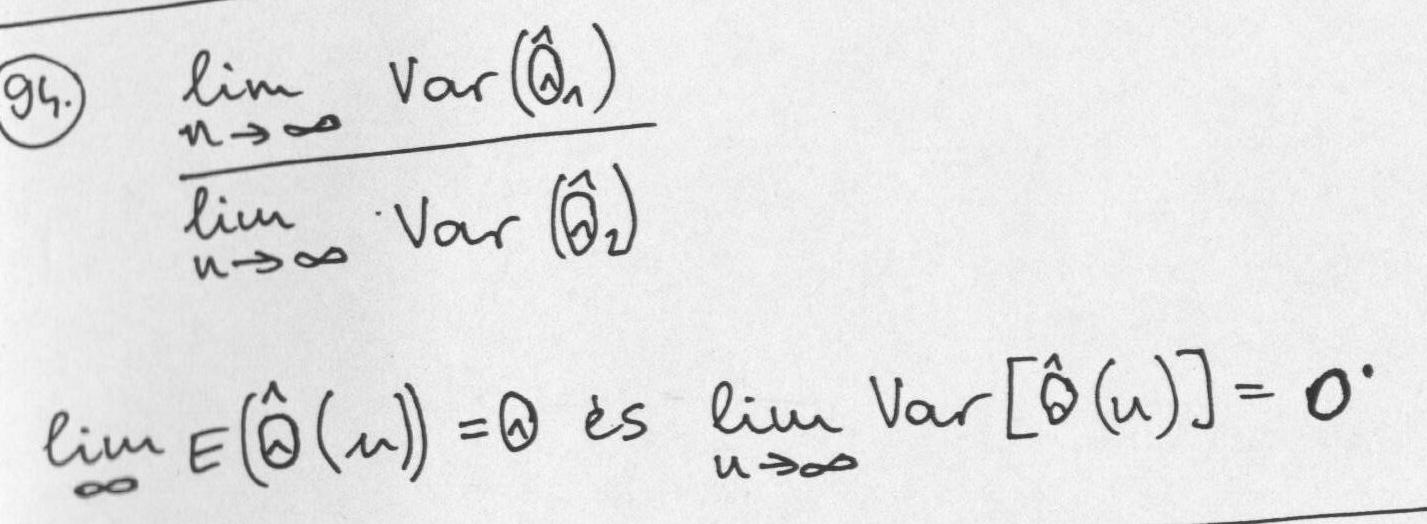 94. lim n→∞ Var(Θ̂₁)
lim n→∞ Var(Θ̂₂)
lim ∞ E(Θ̂(n)) = Θ és lim n→∞ Var[Θ̂(n)] = 0